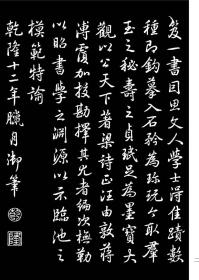 笈一書因思文人學士得佳蹟數
種即鉤摹入石矜為珍玩今取羣
玉之秘壽之貞珉足為墨寶大
觀以公天下著梁詩正汪由敦蔣
溥覆加校勘擇其尤者編次摹勒
以昭書學之淵源以示臨池之
模範特諭
乾隆十二年臘月御筆
隆
二